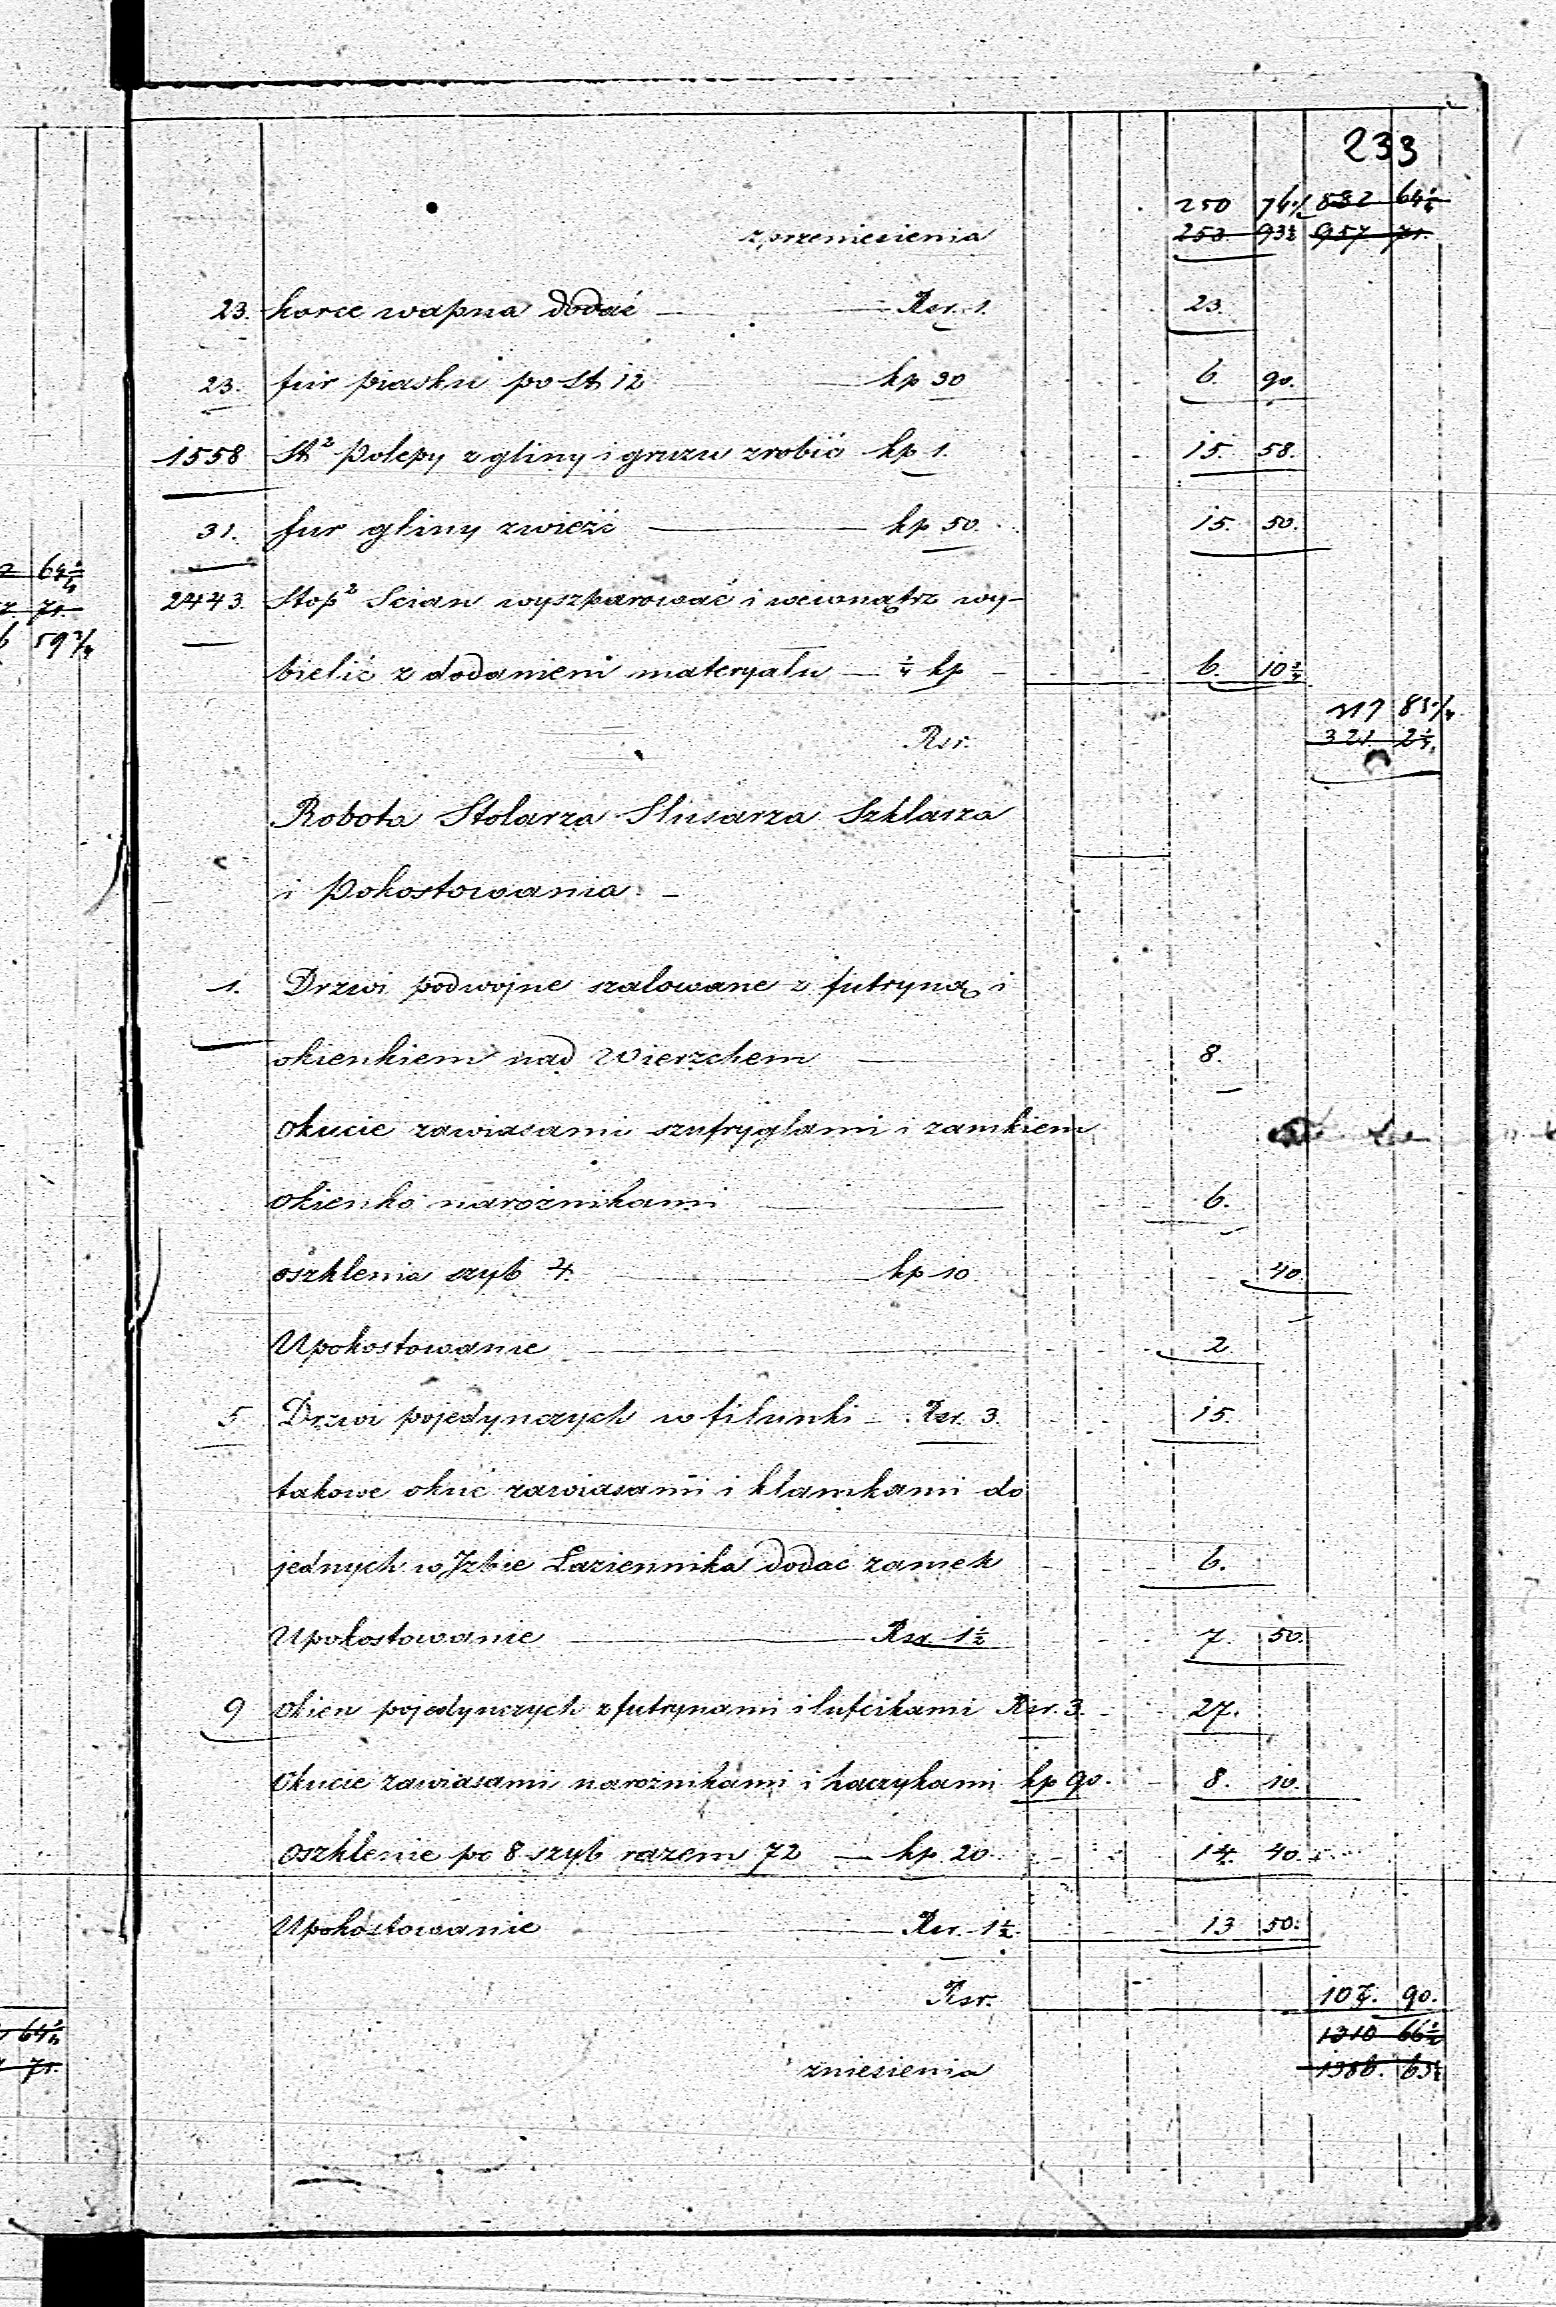 233
250 76½ 832 64¼
z przeniesienia 253 93½ 957 71.
23. korce wapna dodać — Rsr. 1. 23.
23. fur piasku po st 12 — kp 30 6. 90.
1558 St² Polepy z gliny i gruzu zrobić kp 1. 15. 58.
31. fur gliny zwieźć — kp 50. 15. 50.
2443. Stop² Scian wyszparować i wewnątrz wy-
bielić z dodaniem materyału — ¼ kp 6. 10¾
317 83¼
Rsr. 321 2¼
Robota Stolarza Slusarza Szklarza
i Pokostowania. —
1. Drzwi podwojne szalowane z futryną i
okienkiem nad Wierzchem — 8.
Okucie zawiasami szufryglami i zamkiem
okienko narożnikami — 6.
oszklenia szyb 4. — kp 10 40.
Upokostowanie — 2.
5 Drzwi pojedynczych w filunki — Rsr. 3. 15.
takowe okuć zawiasami i klamkami do
jednych w Jzbie Łaziennika dodać zamek 6.
Upokostowanie — Rsr 1½ 7. 50.
9 Okien pojedynczych z futrynami i lufcikami Rsr. 3. 27.
Okucie zawiasami narożnikami i haczykami kp 90. 8. 10.
Oszklenie po 8 szyb razem 72 — kp. 20. 14. 40.
Upokostowanie — Rsr. 1½. 13 50.
Rsr. 107. 90.
1310 66½
zniesienia 1386. 63½
64¼
71.
59¾
64¼
71.